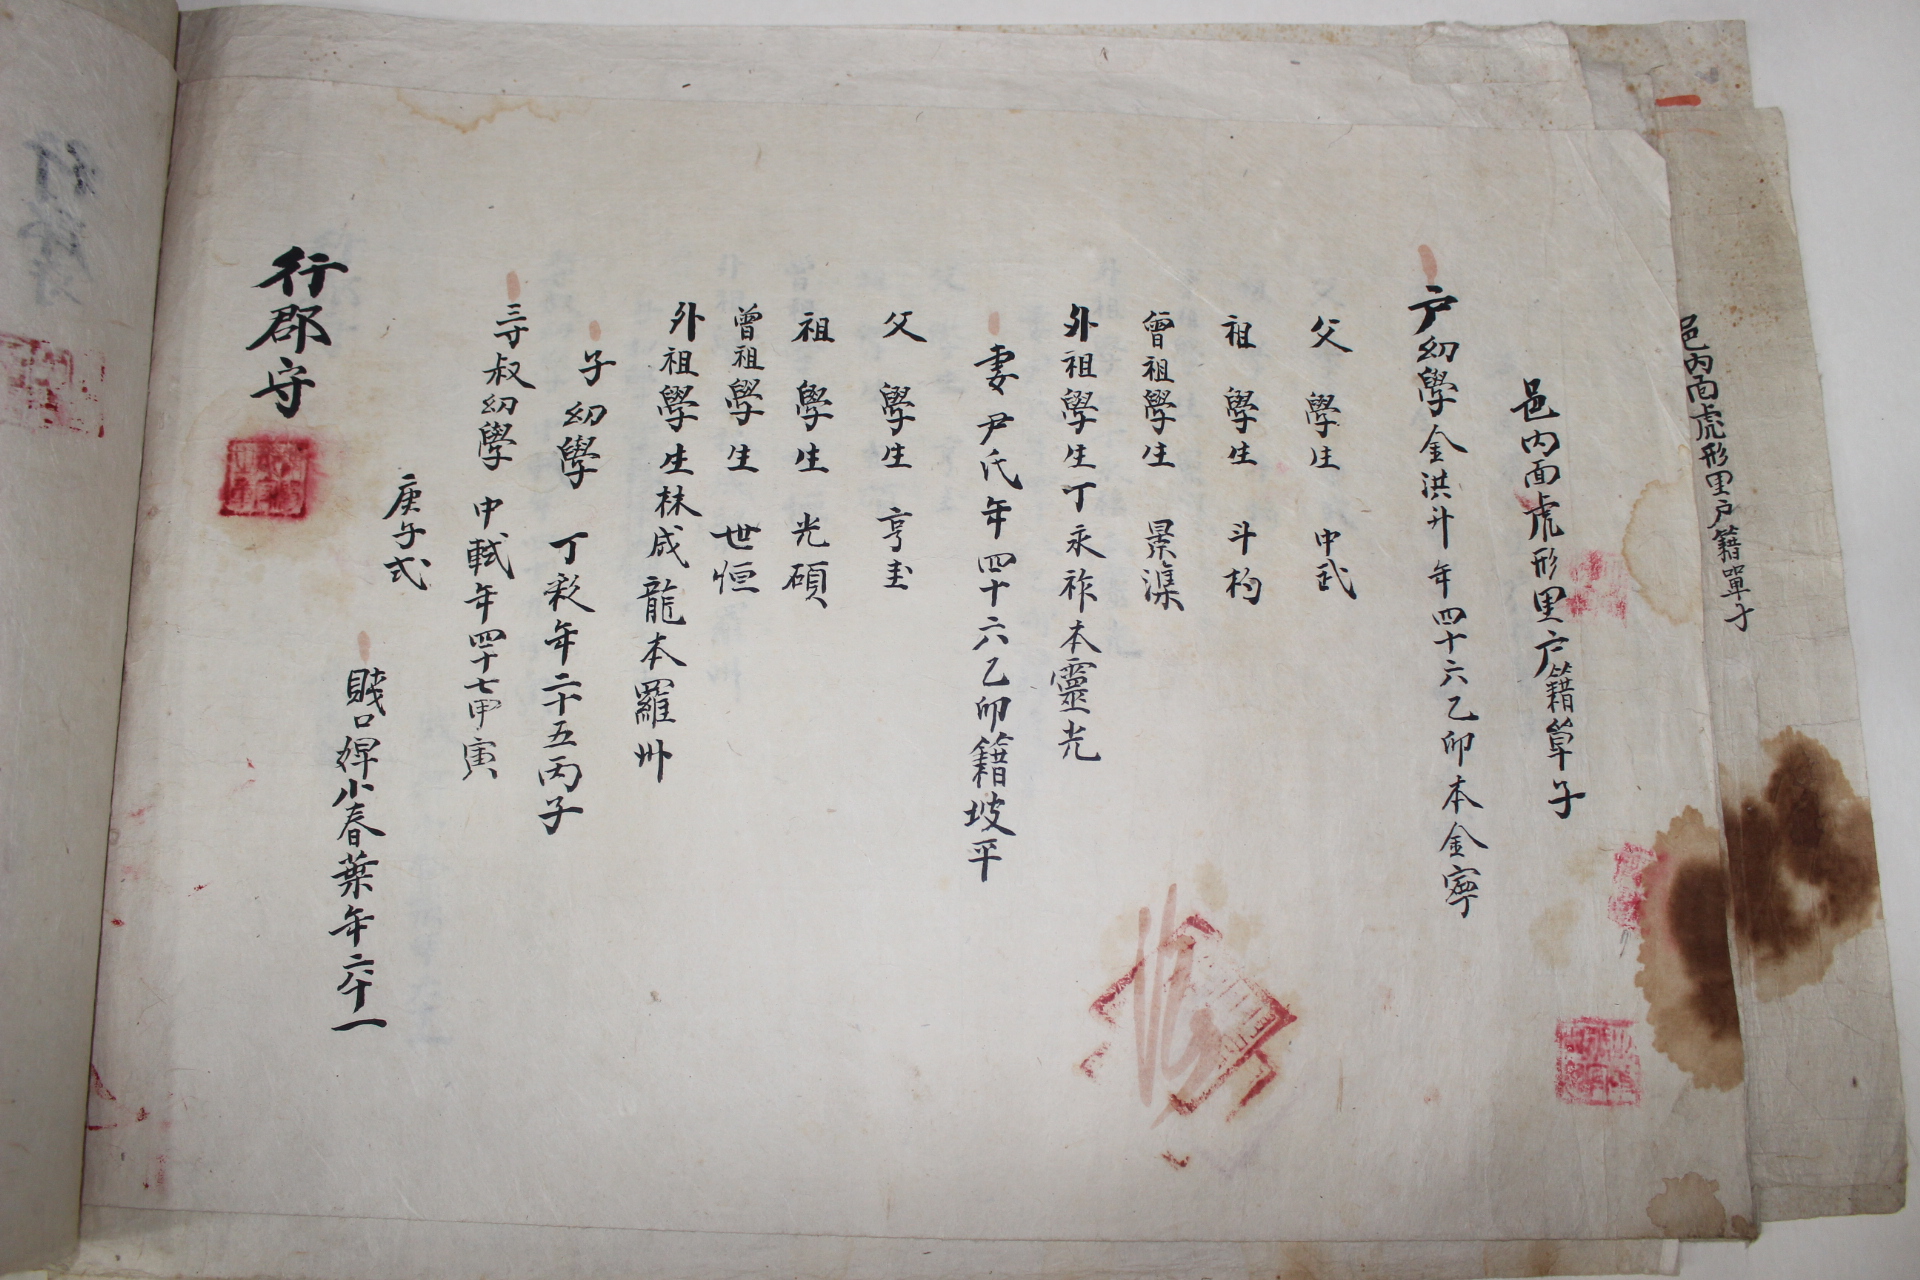 邑內面虎形里戶籍單子
邑內面虎形里戶籍單子
戶幼學金洪斗年四十六乙卯本金寧
父學生中武
祖學生斗杓
曾祖學生景漢
外祖學生丁永祚本靈光
妻尹氏年四十六乙卯籍坡平
父學生亨圭
祖學生光碩
曾祖學生世恒
外祖學生林成龍本羅州
子幼學丁彩年二十五丙子
三寸叔幼學中軾年四十七甲寅
賤口婢小春葉年六十一
庚子式
行郡守